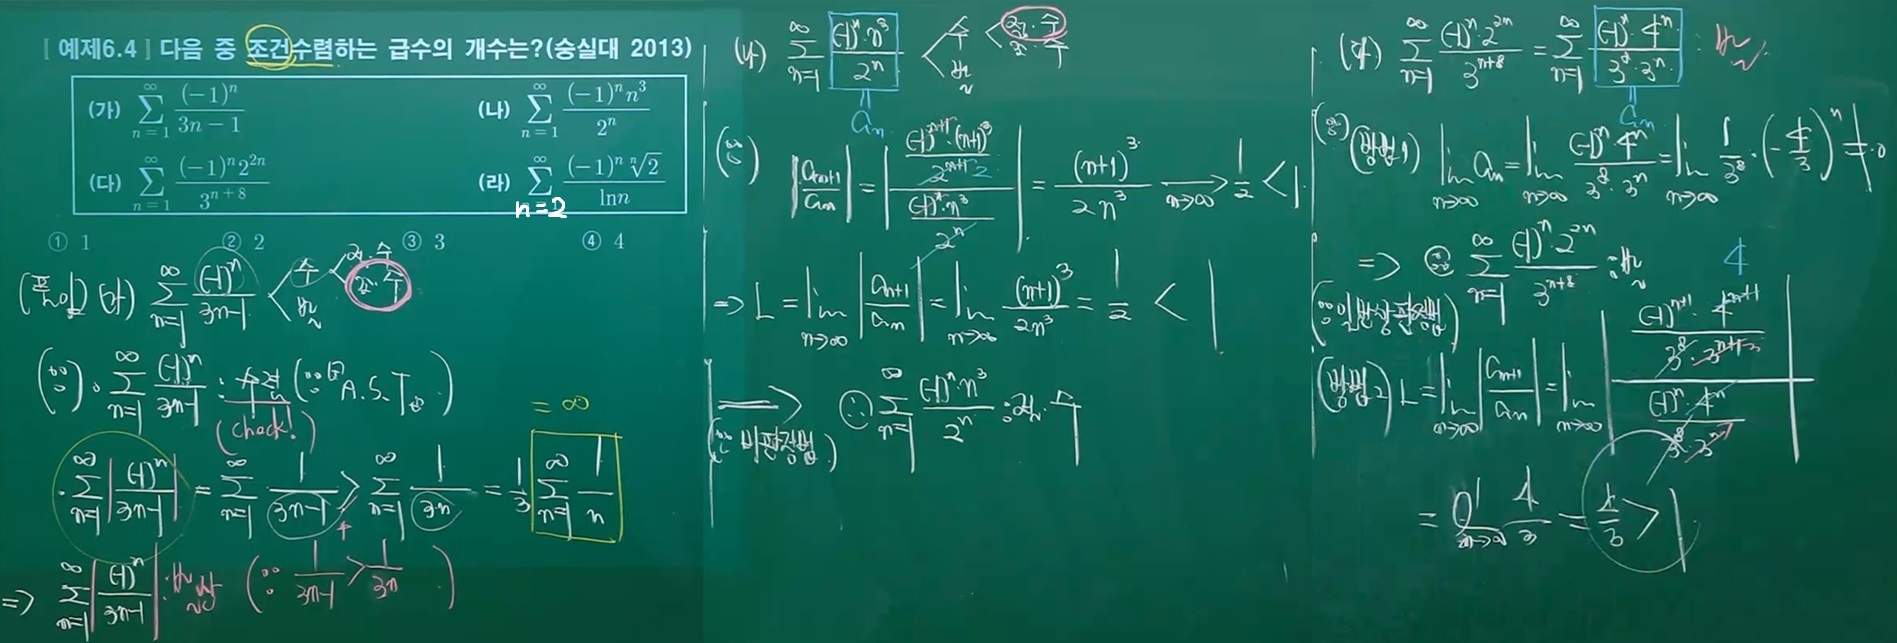 [ 예제6.4 ] 다음 중 조건수렴하는 급수의 개수는?(숭실대 2013)
(가) ∞ ∑ n=1 (-1)^n / 3n-1
(나) ∞ ∑ n=1 (-1)^n n^3 / 2^n
(다) ∞ ∑ n=1 (-1)^n 2^{2n} / 3^{n+8}
(라) ∞ ∑ n=1 (-1)^n ⁿ√2 / ln n
n=2
① 1 ② 2 ③ 3 ④ 4
(풀이) (가) ∞ ∑ n=1 (-1)^n / 3n-1 < 수 < 절·수
조·수
발
(∵) · ∞ ∑ n=1 (-1)^n / 3n-1 : 수렴 (∵ A.S.T)
(check!)
· ∞ ∑ n=1 |(-1)^n / 3n-1| = ∞ ∑ n=1 1 / 3n-1 > ∞ ∑ n=1 1 / 3n = 1/3 ∞ ∑ n=1 1/n
= ∞
=> ∞ ∑ n=1 |(-1)^n / 3n-1| : 발산 (∵ 1 / 3n-1 > 1 / 3n)
(나) ∞ ∑ n=1 (-1)^n · n^3 / 2^n < 수 < 절·수
조·수
발
a_n
(∵) |a_{n+1} / a_n| = |(-1)^{n+1} · (n+1)^3 / 2^{n+1} 2 / (-1)^n · n^3 / 2^n| = (n+1)^3 / 2n^3 → n→∞ 1/2 < 1
=> L = lim n→∞ |a_{n+1} / a_n| = lim n→∞ (n+1)^3 / 2n^3 = 1/2 < 1
=> (∵ 비판정법) ∴ ∞ ∑ n=1 (-1)^n · n^3 / 2^n : 절·수
(다) ∞ ∑ n=1 (-1)^n · 2^{2n} / 3^{n+8} = ∞ ∑ n=1 (-1)^n · 4^n / 3^8 · 3^n : 발
a_n
(∵) (방법1) lim n→∞ a_n = lim n→∞ (-1)^n 4^n / 3^8 · 3^n = lim n→∞ 1/3^8 · (-4/3)^n ≠ 0
=> ∴ ∞ ∑ n=1 (-1)^n · 2^{2n} / 3^{n+8} : 발
(∵ 일반항판정법)
4
(방법2) L = lim n→∞ |a_{n+1} / a_n| = lim n→∞ |(-1)^{n+1} · 4^{n+1} / 3^8 · 3^{n+1} 3 / (-1)^n · 4^n / 3^8 · 3^n|
= lim n→∞ 4/3 = 4/3 > 1